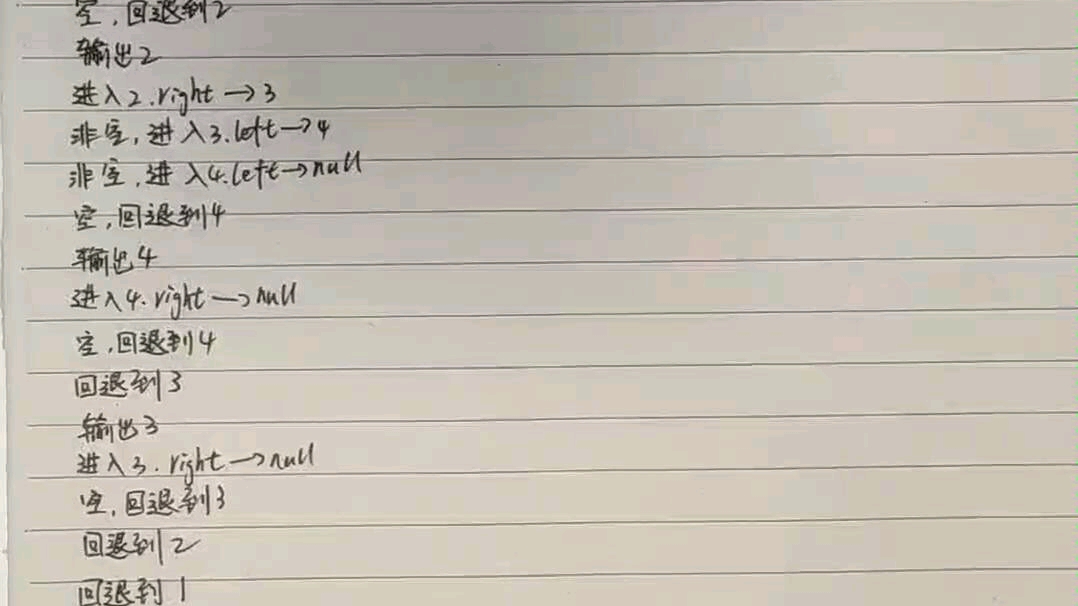 空,回退到2
输出2
进入2.right→3
非空,进入3.left→4
非空,进入4.left→null
空,回退到4
输出4
进入4.right→null
空,回退到4
回退到3
输出3
进入3.right→null
空,回退到3
回退到2
回退到1